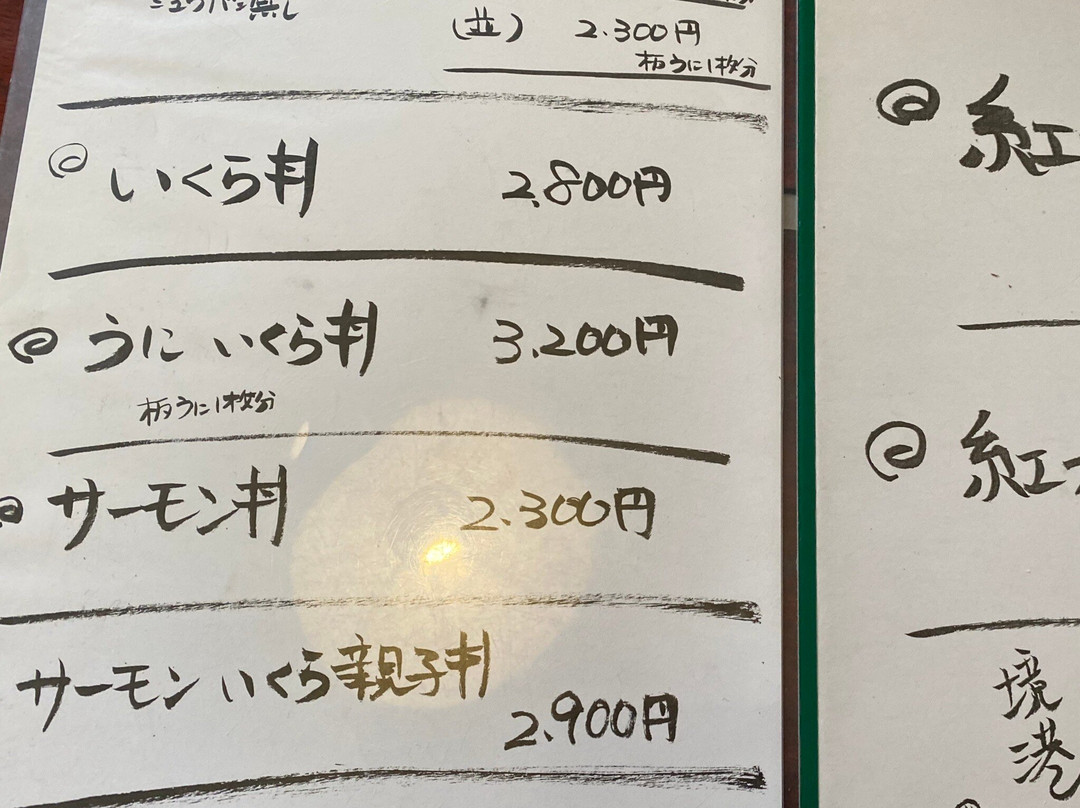 (並) 2.300円
板うに1枚分
いくら丼 2.800円
うに いくら丼 3.200円
板うに1枚分
サーモン丼 2.300円
サーモン いくら親子丼
2.900円
紅
紅
境
港